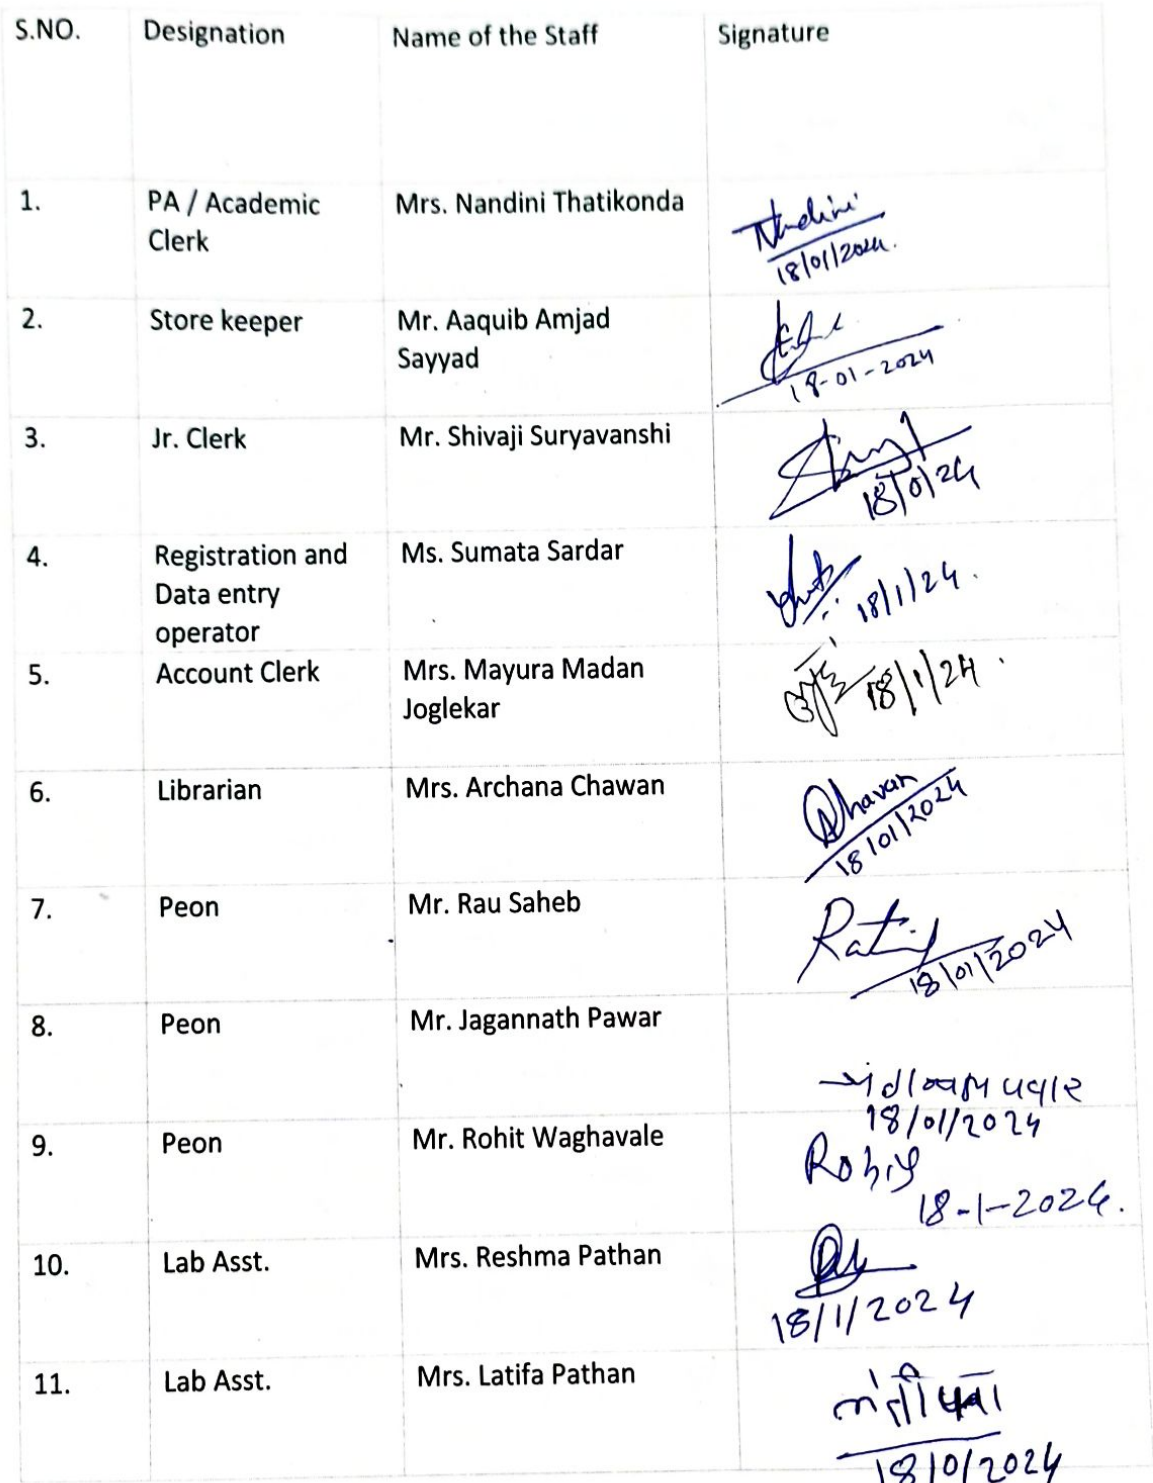 S.NO. Designation Name of the Staff Signature
1. PA / Academic Mrs. Nandini Thatikonda
Clerk
Nndini
18/01/2024.
2. Store keeper Mr. Aaquib Amjad
Sayyad
18-01-2024
3. Jr. Clerk Mr. Shivaji Suryavanshi
18/0/24
4. Registration and Ms. Sumata Sardar
Data entry
operator
18/1/24.
5. Account Clerk Mrs. Mayura Madan
Joglekar
18/1/24.
6. Librarian Mrs. Archana Chawan
18/01/2024
7. Peon Mr. Rau Saheb
18/01/2024
8. Peon Mr. Jagannath Pawar
पवार
18/01/2024
9. Peon Mr. Rohit Waghavale
Rohit
18-1-2024.
10. Lab Asst. Mrs. Reshma Pathan
18/1/2024
11. Lab Asst. Mrs. Latifa Pathan
18/0/2024